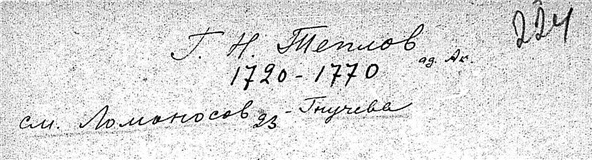 224
Г. Н. Теплов
ад. Ак.
1720 - 1770
см. Ломоносов 93 - Гнучева